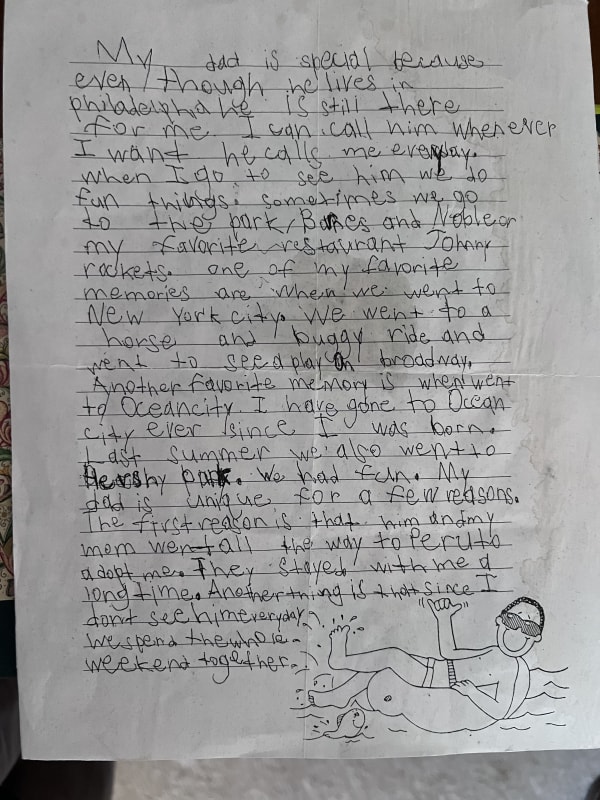 My dad is special because
even though he lives in
philadelphia he is still there
for me. I can call him whenever
I want he calls me everyday.
when I go to see him we do
fun things. sometimes we go
to the park, Barnes and Noble or
my favorite restaurant Johnny
rockets. one of my favorite
memories are when we went to
New York city. We went to a
horse and buggy ride and
went to see a play on broadway.
Another favorite memory is when went
to Oceancity. I have gone to Ocean
city ever since I was born.
Last summer we also went to
Hearshy park. We had fun. My
dad is unique for a few reasons.
The first reason is that him and my
mom went all the way to Peru to
adopt me. They stayed with me a
long time. Another thing is that since I
dont see him everyday,
we spend the whole
weekend together.